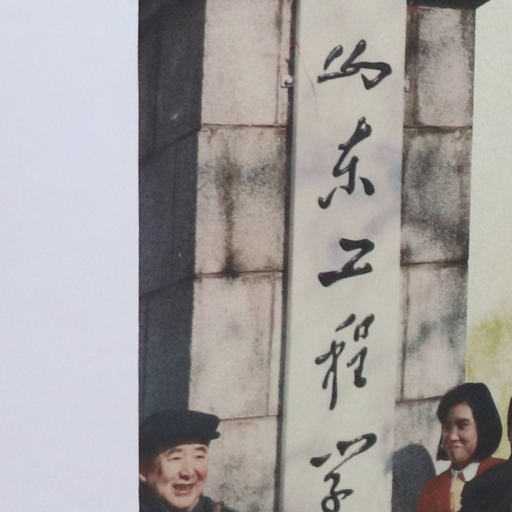 山东工程学